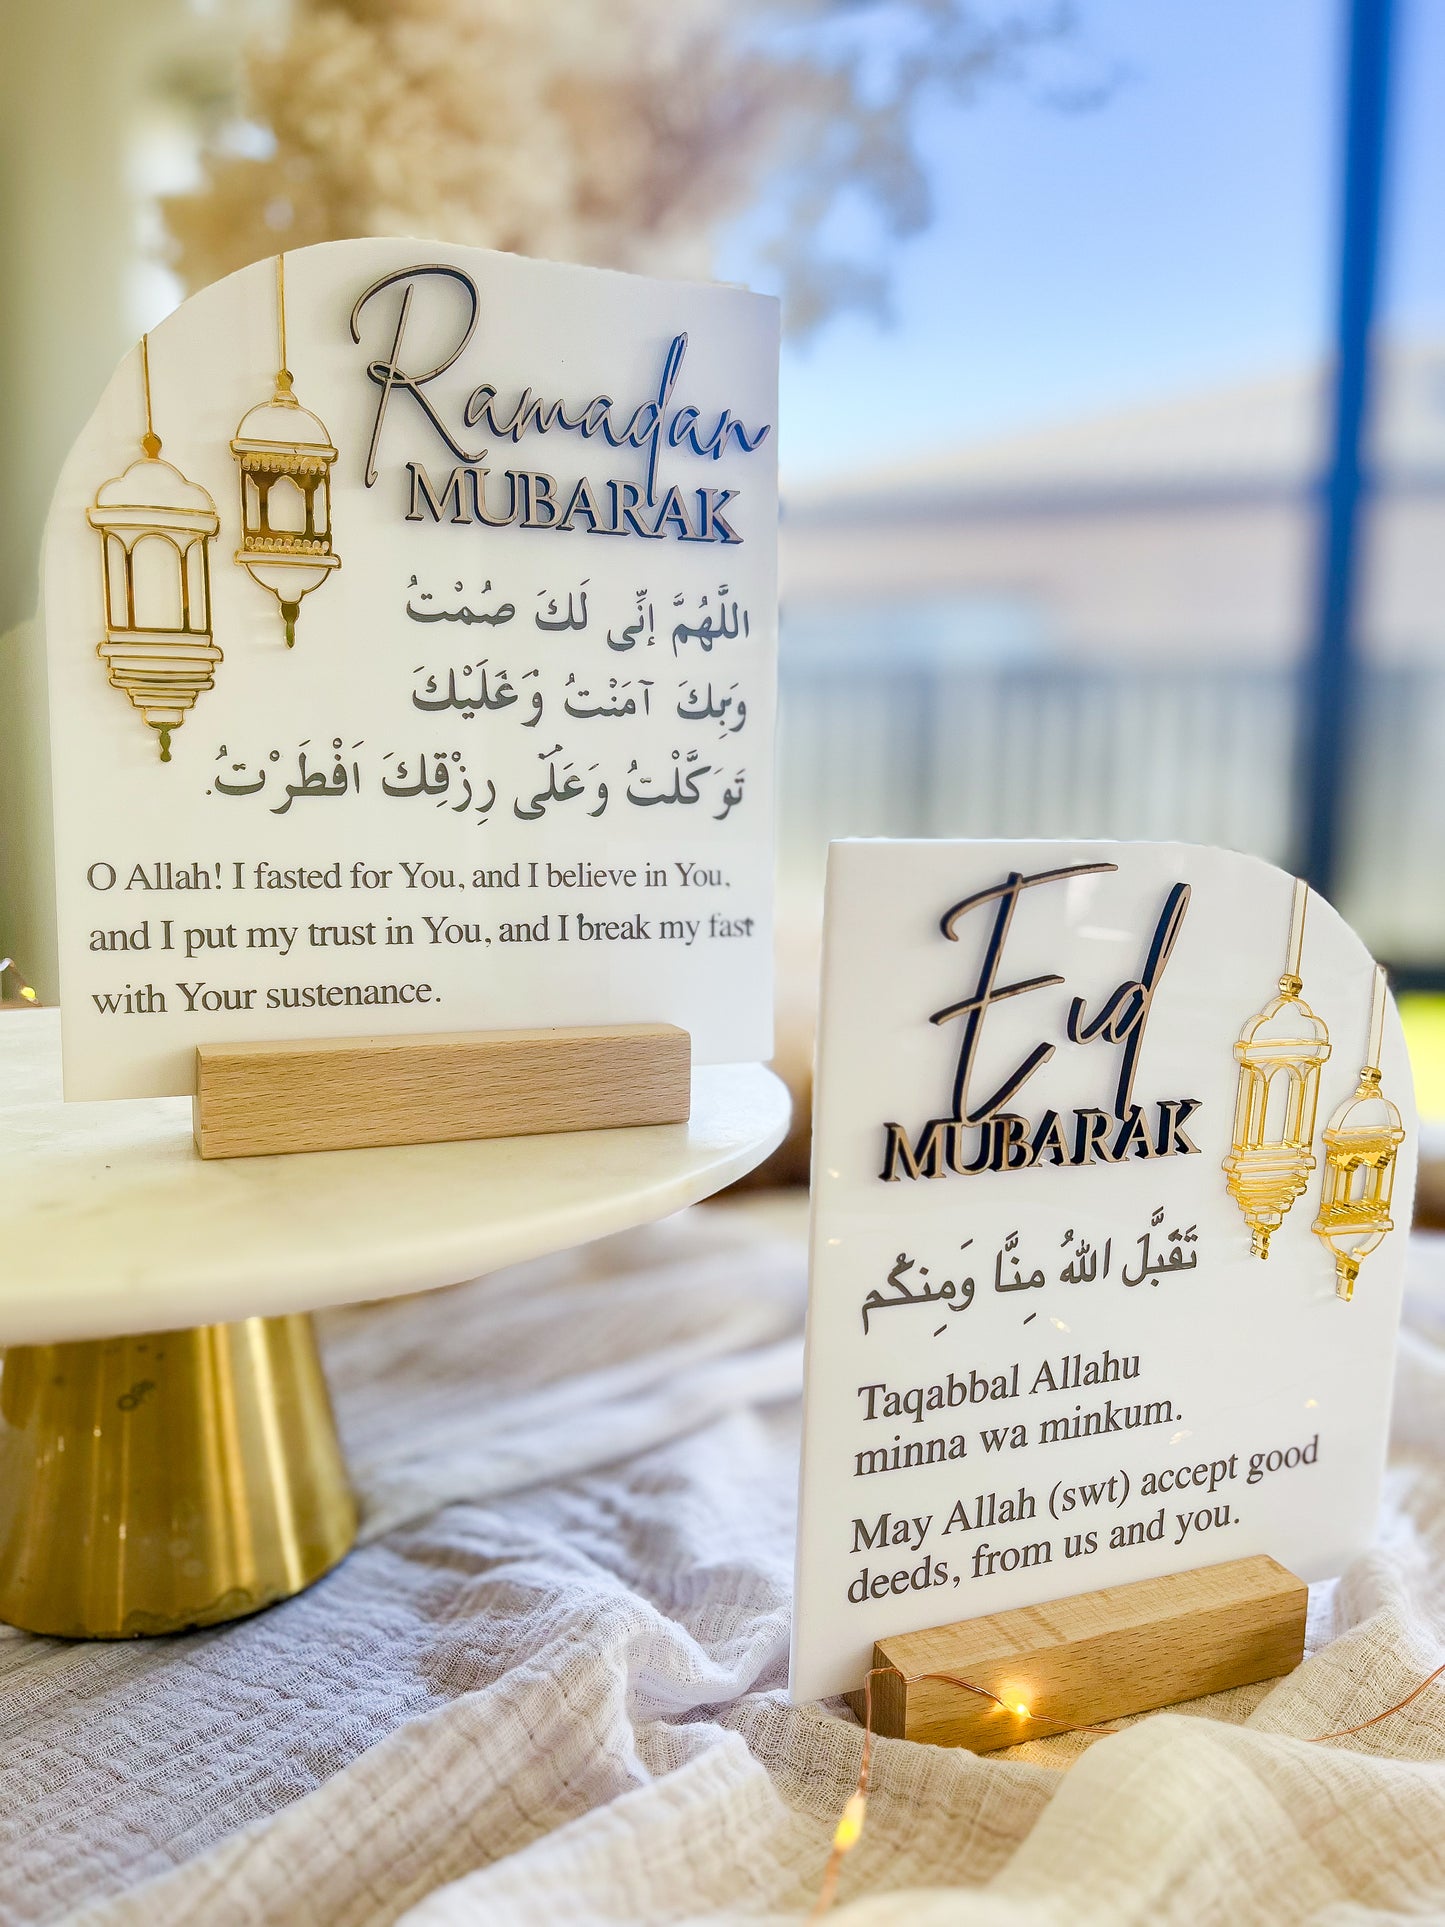 Ramadan
MUBARAK
اللَّهُمَّ إنِّى لَكَ صُمْتُ
وَبِكَ آمَنْتُ وَعَلَيْكَ
تَوَكَّلْتُ وَعَلَى رِزْقِكَ اَفْطَرْتُ.
O Allah! I fasted for You, and I believe in You,
and I put my trust in You, and I break my fast
with Your sustenance.
Eid
MUBARAK
تَقَبَّلَ اللهُ مِنَّا وَمِنكُم
Taqabbal Allahu
minna wa minkum.
May Allah (swt) accept good
deeds, from us and you.